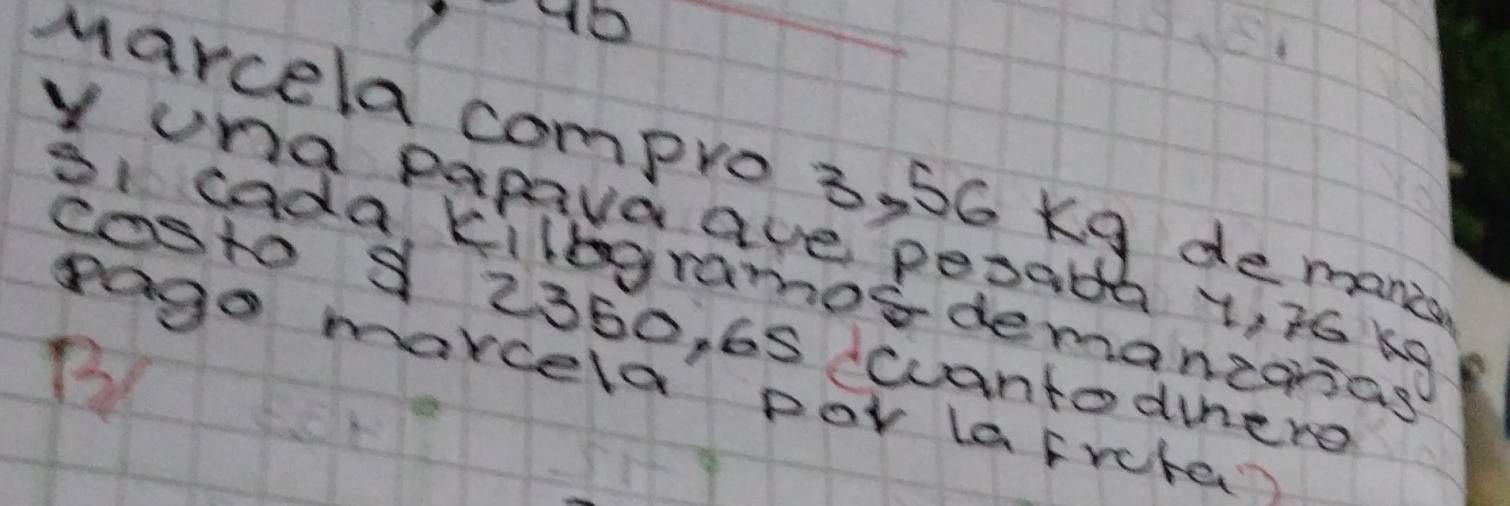 46
Marcela compro 3,56 Kg de manzan
y una papaya que pesaba 1,76 kg
si cada killogramos de manzanas
costo $ 2350,65 ¿cuanto dinero
pago marcela por la frcta?
R/